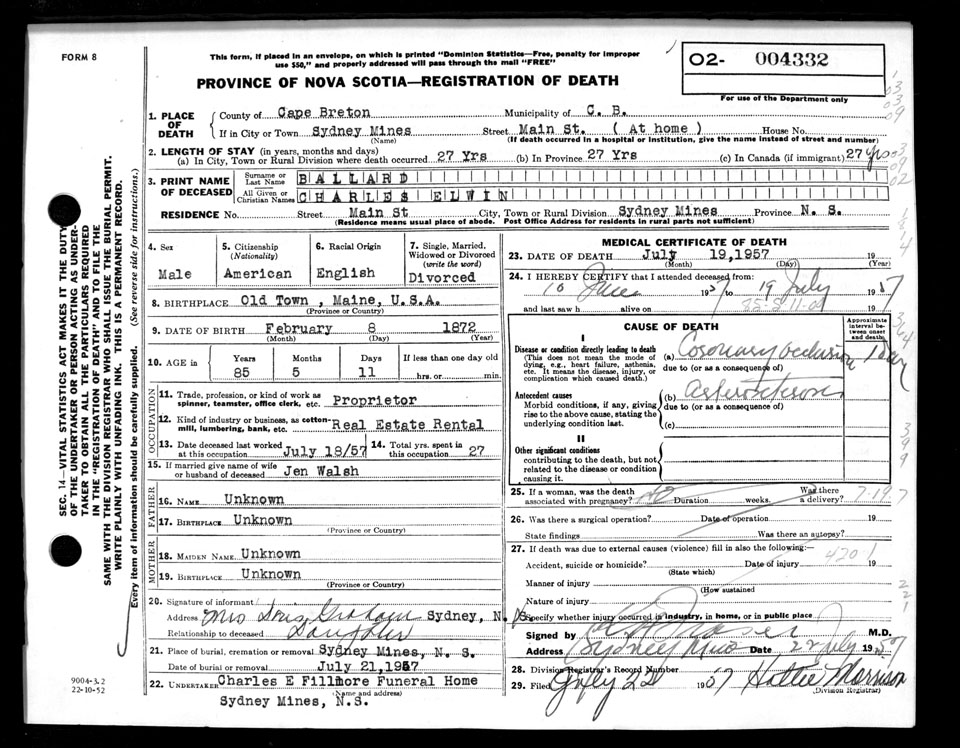 FORM 8
This form, if placed in an envelope, on which is printed "Dominion Statistics—Free, penalty for improper
use $50," and properly addressed will pass through the mail "FREE"
PROVINCE OF NOVA SCOTIA—REGISTRATION OF DEATH
O2- 004332
For use of the Department only
1. PLACE OF DEATH
County of Cape Breton Municipality of C. B.
If in City or Town Sydney Mines Street Main St. ( At home ) House No.
(Name) (If death occurred in a hospital or institution, give the name instead of street and number)
2. LENGTH OF STAY (in years, months and days)
(a) In City, Town or Rural Division where death occurred 27 Yrs (b) In Province 27 Yrs (c) In Canada (if immigrant) 27 Yrs
3. PRINT NAME OF DECEASED
Surname or Last Name BALLARD
All Given or Christian Names CHARLES ELWIN
RESIDENCE No. Street Main St City, Town or Rural Division Sydney Mines Province N. S.
(Residence means usual place of abode. Post Office Address for residents in rural parts not sufficient)
4. Sex Male
5. Citizenship (Nationality) American
6. Racial Origin English
7. Single, Married, Widowed or Divorced (write the word) Divorced
8. BIRTHPLACE Old Town , Maine, U.S.A.
(Province or Country)
9. DATE OF BIRTH February 8 1872
(Month) (Day) (Year)
10. AGE in Years Months Days If less than one day old
85 5 11 hrs. or min.
OCCUPATION
11. Trade, profession, or kind of work as spinner, teamster, office clerk, etc. Proprietor
12. Kind of industry or business, as cotton-mill, lumbering, bank, etc. Real Estate Rental
13. Date deceased last worked at this occupation July 18/57 14. Total yrs. spent in this occupation 27
15. If married give name of wife or husband of deceased Jen Walsh
FATHER
16. NAME Unknown
17. BIRTHPLACE Unknown
(Province or Country)
MOTHER
18. MAIDEN NAME Unknown
19. BIRTHPLACE Unknown
(Province or Country)
20. Signature of informant
Address Mrs Doris Graham Sydney, N. S.
Relationship to deceased Daughter
21. Place of burial, cremation or removal Sydney Mines, N. S.
Date of burial or removal July 21,1957
22. UNDERTAKER Charles E Fillmore Funeral Home
(Name and address)
Sydney Mines, N.S.
MEDICAL CERTIFICATE OF DEATH
23. DATE OF DEATH July 19,1957 19
(Month) (Day) (Year)
24. I HEREBY CERTIFY that I attended deceased from:
10 June 1957 to 19 July 1957
and last saw h alive on 19
CAUSE OF DEATH
Approximate interval between onset and death
I
Disease or condition directly leading to death
(This does not mean the mode of dying, e.g., heart failure, asthenia, etc. It means the disease, injury, or complication which caused death.)
(a) Coronary Occlusion 1 Day
due to (or as a consequence of)
Antecedent causes
Morbid conditions, if any, giving rise to the above cause, stating the underlying condition last.
(b)
due to (or as a consequence of)
(c)
II
Other significant conditions
contributing to the death, but not related to the disease or condition causing it.
25. If a woman, was the death associated with pregnancy? Duration weeks. Was there a delivery? 7-19-7
26. Was there a surgical operation? Date of operation 19
State findings Was there an autopsy?
27. If death was due to external causes (violence) fill in also the following:—
420-1
Accident, suicide or homicide? Date of injury 19
(State which)
Manner of injury
(How sustained
Nature of injury
Specify whether injury occurred in industry, in home, or in public place
Signed by M.D.
Address Sydney Mines Date 22 July 1957
28. Division Registrar's Record Number
29. Filed July 22 1957 Hattie Morrison
(Division Registrar)
SEC. 14—VITAL STATISTICS ACT MAKES IT THE DUTY
OF THE UNDERTAKER OR PERSON ACTING AS UNDER-
TAKER TO OBTAIN ALL THE PARTICULARS REQUIRED
IN THE "REGISTRATION OF DEATH" AND TO FILE THE
SAME WITH THE DIVISION REGISTRAR WHO SHALL ISSUE THE BURIAL PERMIT.
WRITE PLAINLY WITH UNFADING INK. THIS IS A PERMANENT RECORD.
Every item of information should be carefully supplied. (See reverse side for instructions.)
9004-3.2
22-10-52